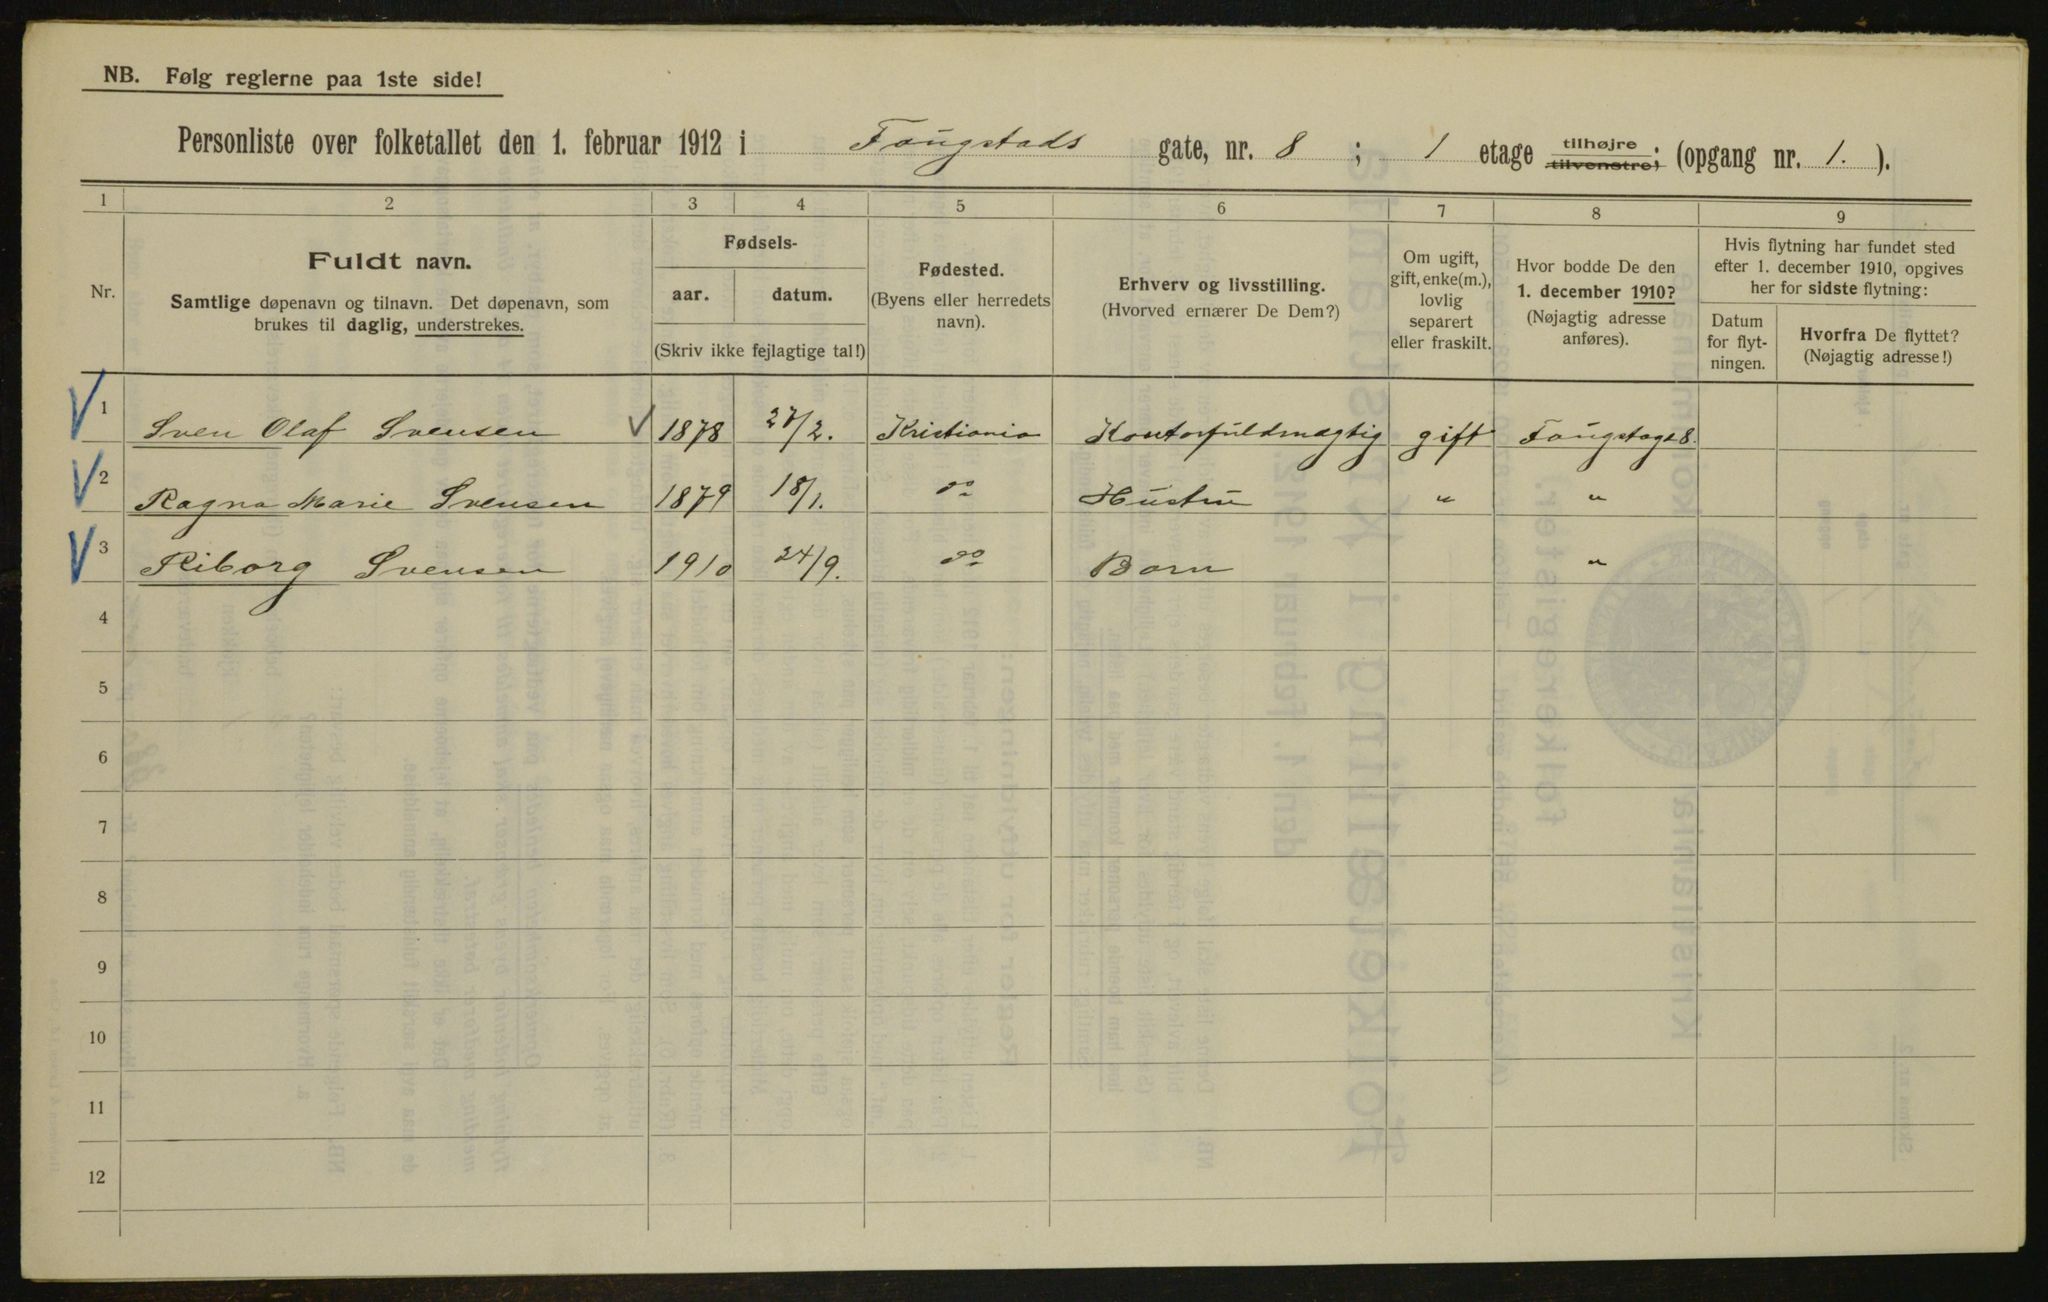 NB. Følg reglerne paa 1ste side!
Personliste over folketallet den 1. februar 1912 i Faugstads gate, nr. 8 ; 1 etage tilhøjre tilvenstre; (opgang nr. 1. ).
1 2 3 4 5 6 7 8 9
Nr.
Fuldt navn.
Samtlige døpenavn og tilnavn. Det døpenavn, som
brukes til daglig, understrekes.
Fødsels-
aar. datum.
(Skriv ikke fejlagtige tal!)
Fødested.
(Byens eller herredets
navn).
Erhverv og livsstilling.
(Hvorved ernærer De Dem?)
Om ugift,
gift, enke(m.),
lovlig
separert
eller fraskilt.
Hvor bodde De den
1. december 1910?
(Nøjagtig adresse
anføres).
Hvis flytning har fundet sted
efter 1. december 1910, opgives
her for sidste flytning:
Datum
for flyt-
ningen.
Hvorfra De flyttet?
(Nøjagtig adresse!)
1 Sven Olaf Svensen 1878 27/2. Kristiania Kontorfuldmægtig gift Faugstadgt 8.
2 Ragna Marie Svensen 1879 18/1. do Hustru " "
3 Riborg Svensen 1910 24/9. do Barn "
4
5
6
7
8
9
10
11
12